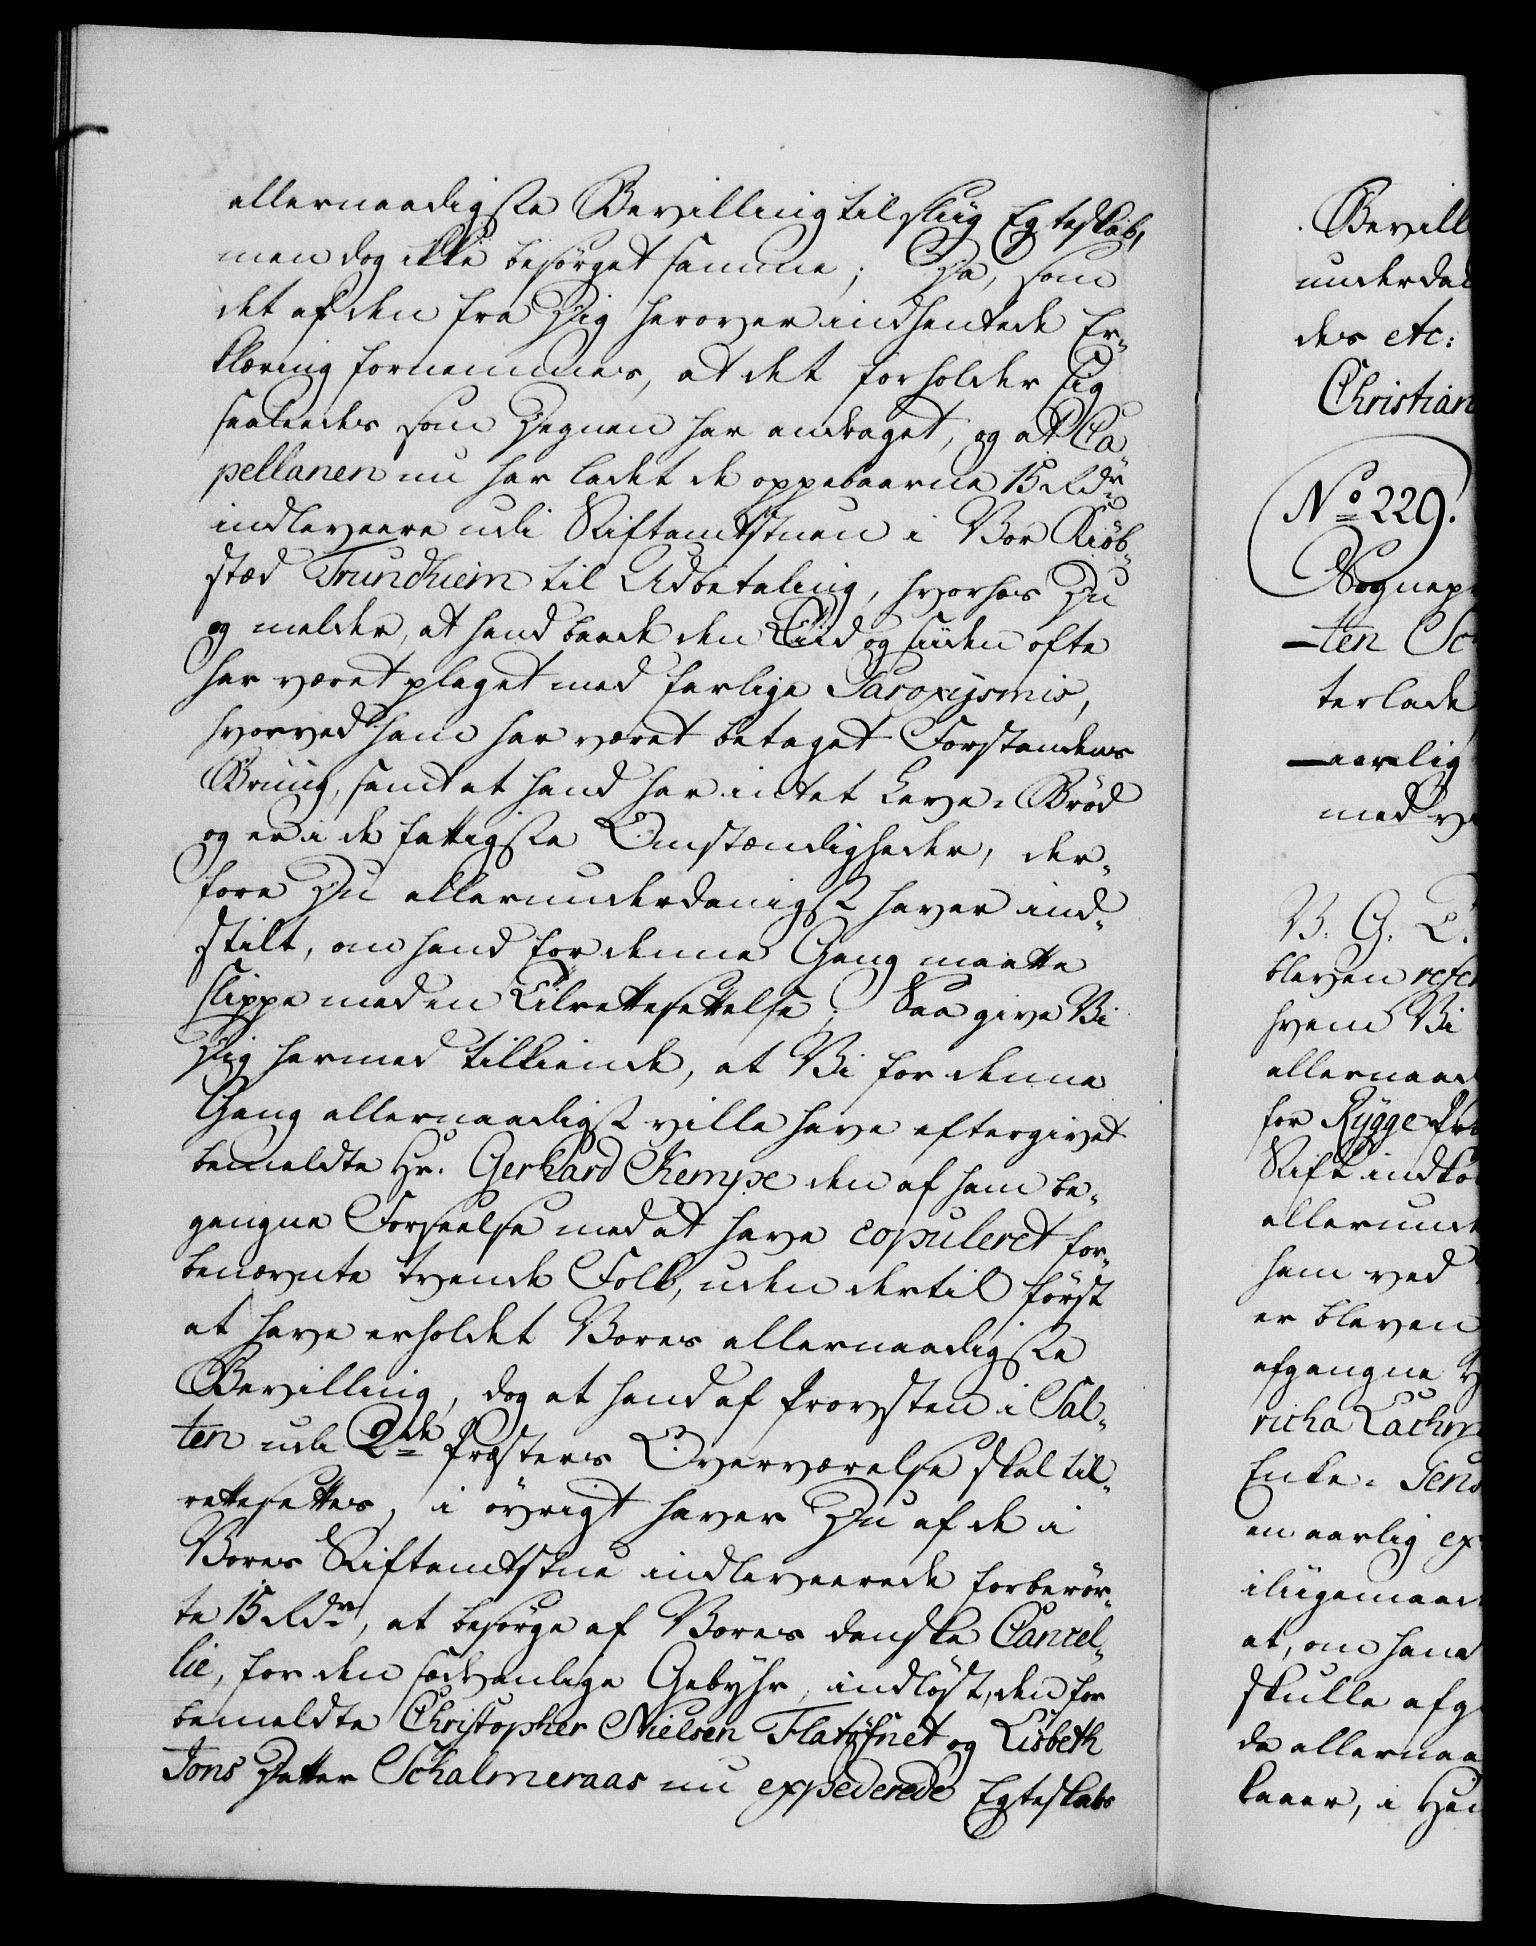 allernaadigste Bevilling til sliig Egteskab,
men dog ikke besørget samme; Da, som
det af den fra Dig herover indhentede Er-
klæring fornemmes, at det forholder sig
saaledes som Degnen har andraget, og at Ca-
pellanen nu har ladet de oppebaarne 15 Rdr
indlevere udi Stiftamtstuen i Vor Kiøb-
stæd Trundhiem til Udbetaling, hvorhos Du
og melder, at hand baade den Tiid og siiden ofte
har været plaget med farlige Paroxysmis,
hvorved ham har været betaget Forstandens
Bruug, samt at hand har intet Leve-Brød
og er i de fattigste Omstændigheder, der-
fore Du allerunderdanigst haver ind-
stilt, om hand for denne Gang maatte
slippe med en Tilrettesettelse; Saa give Vi
Dig hermed tilkiende, at Vi for denne
Gang allernaadigst ville have eftergivet
bemeldte Hr. Gerhard Kempe den af ham be-
gangne Forseelse med at have copuleret for-
benævnte tvende Folk, uden dertil først
at have erholdet Vores allernaadigste
Bevilling, dog at hand af Provsten i Sal-
ten udi 2de Præsters Overværelse skal til-
rettesettes, i øvrigt haver Du af de i
Vores Stiftamtstue indleverede forberør-
te 15 Rdr, at besørge af Vores danske Cancel-
lie, for den sædvanlige Gebyhr, indløst, den for
bemeldte Christopher Nielsen Flatøfnet og Lisbeth
Jons Datter Schalmeraas nu expederede Egteskabs
Bevill
underda
des etc:
Christian
No 229.
Sognep
ten Sc
terlade
aarlig
med
V. G. T.
bleven refe
hvem Vi
allernaad
for Rygge Præ
Stift indko
allerund
ham ved
er bleven
afgangne H
richa Lachm
Enke-Pens
en aarlig ex
iliigemaad
at, om hand
skulle afg
da allernaa
kaaer, i Hen